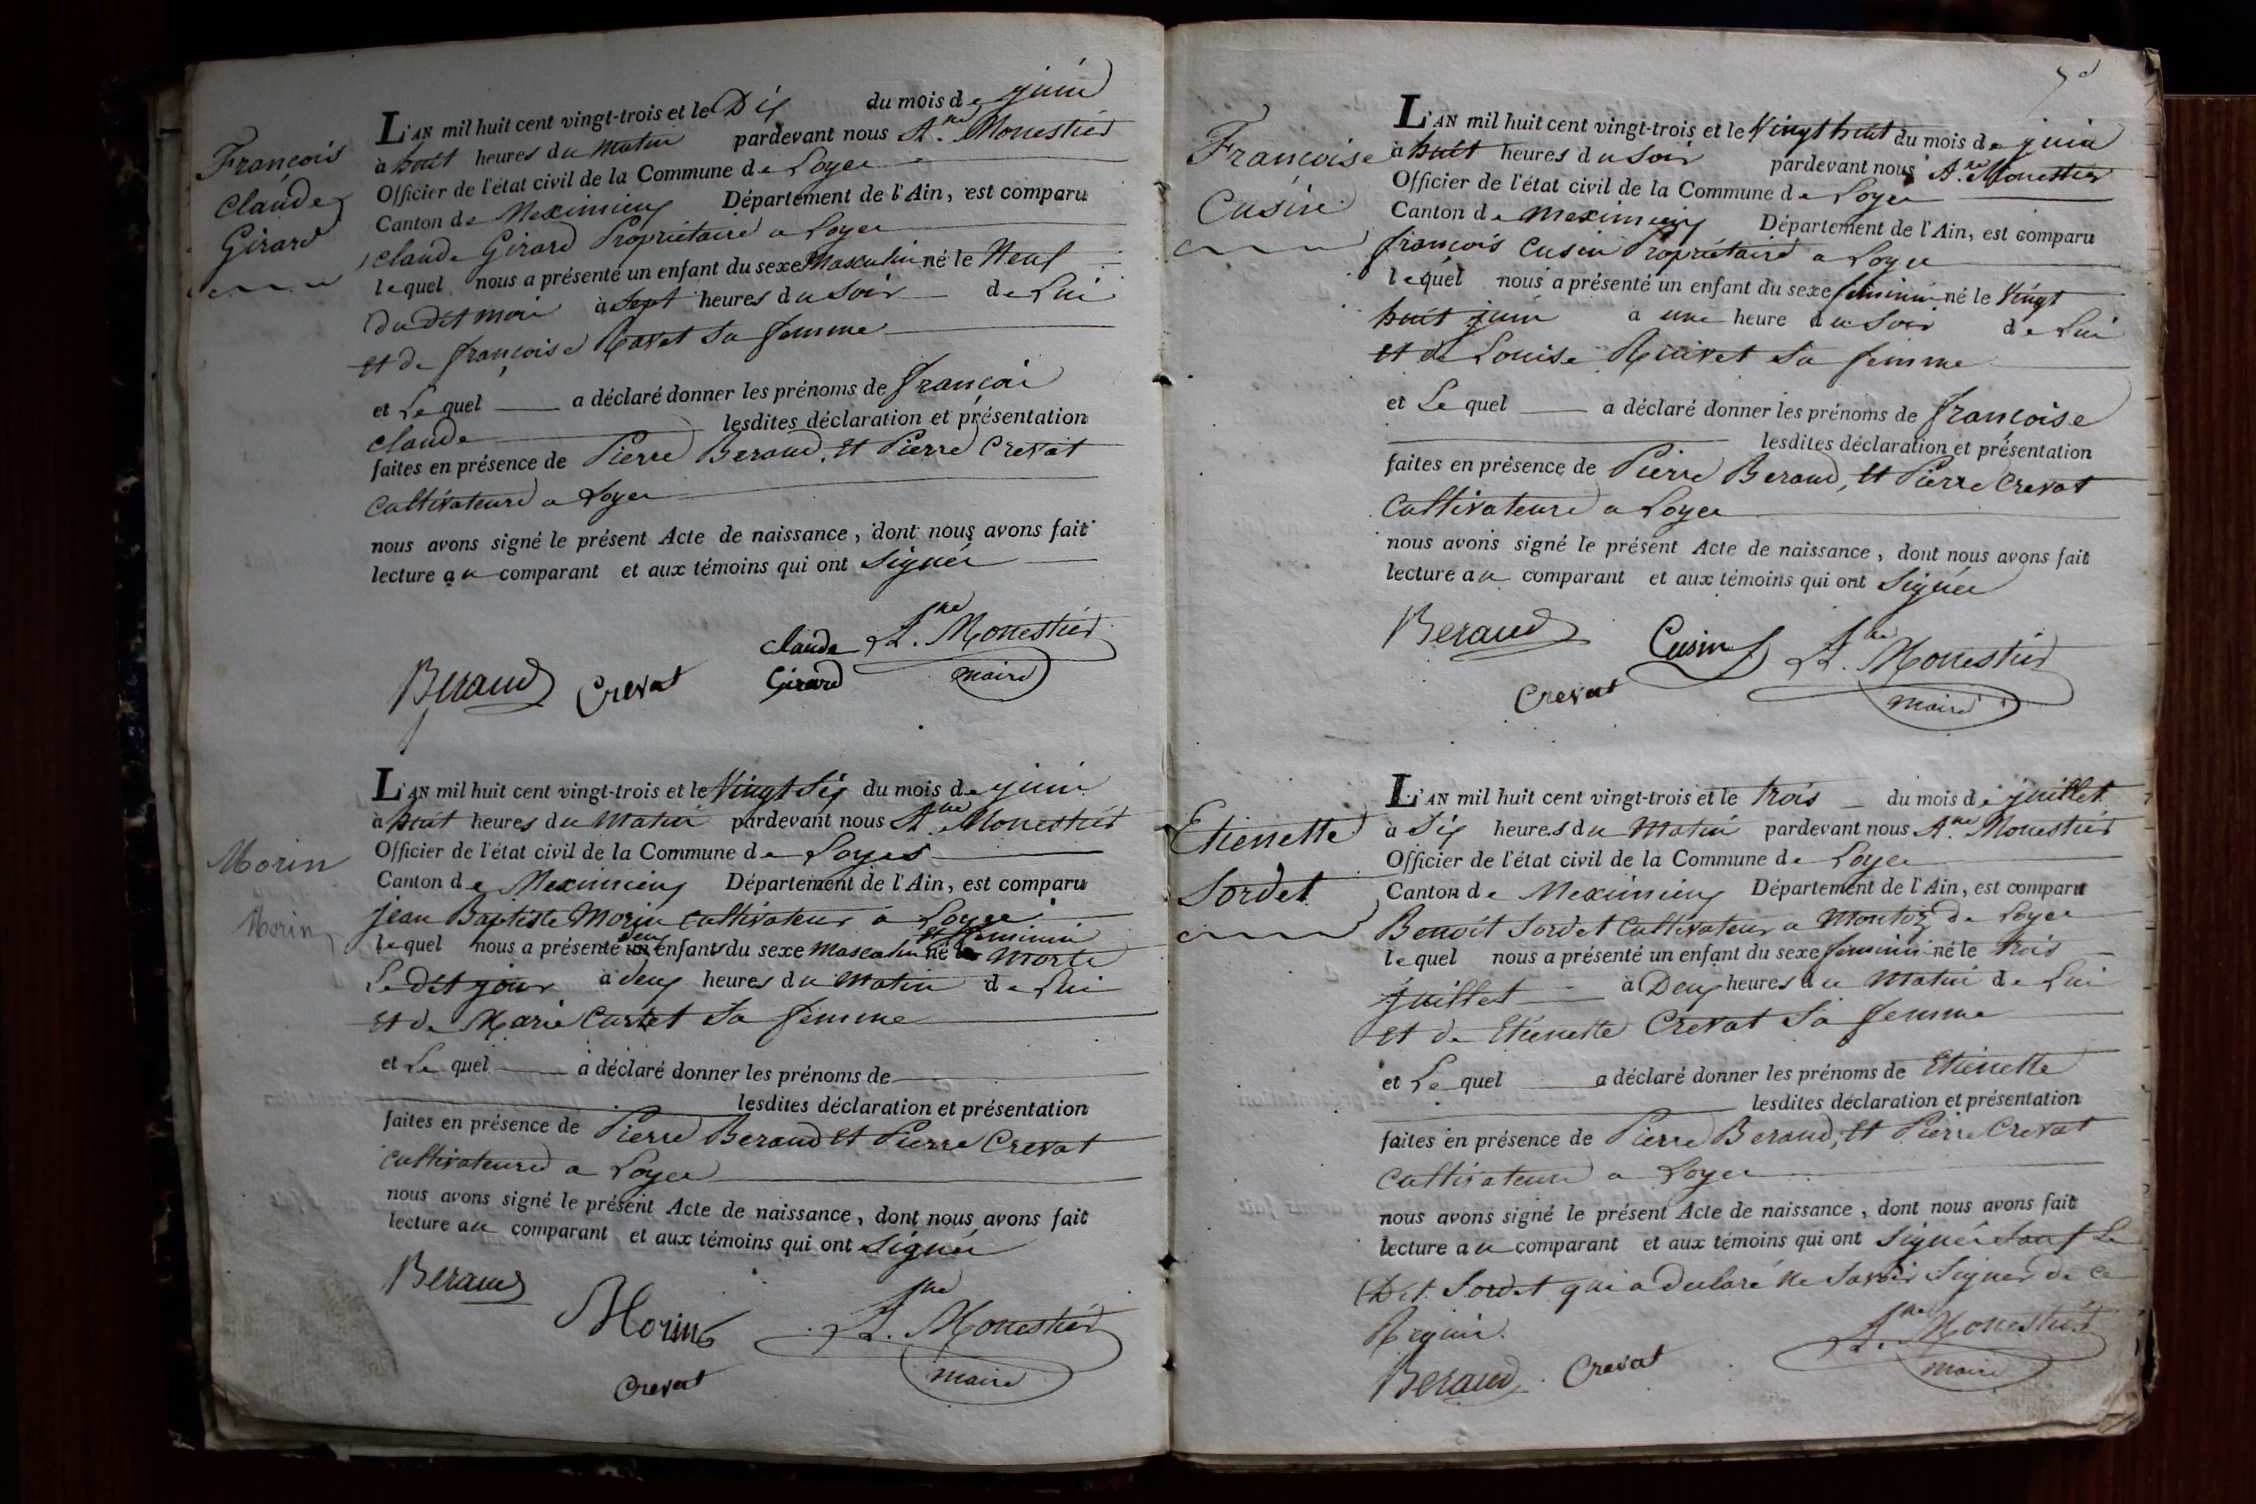 François
Claude
Girard
L'AN mil huit cent vingt-trois et le Dix du mois de juin
à huit heures du matin pardevant nous A.ne Monestier
Officier de l'état civil de la Commune de Loyes
Canton de Meximieux Département de l'Ain, est comparu
Claude Girard Propriétaire a Loyes
lequel nous a présenté un enfant du sexe Masculin né le Neuf
du dit mois à Sept heures du Soir de Lui
et de françoise Ravet Sa femme
et Le quel a déclaré donner les prénoms de françois
Claude lesdites déclaration et présentation
faites en présence de Pierre Beraud, et Pierre Crevat
Cultivateurs a Loyes
nous avons signé le présent Acte de naissance, dont nous avons fait
lecture au comparant et aux témoins qui ont Signés
claude A.ne Monestier
Beraud Crevat Girard maire
Morin
Morin
L'AN mil huit cent vingt-trois et le Vingt Six du mois de juin
à huit heures du Matin pardevant nous A.ne Monestier
Officier de l'état civil de la Commune de Loyes
Canton de Meximieux Département de l'Ain, est comparu
jean Baptiste Morin Cultivateur a Loyes
et feminin
lequel nous a présenté deux enfants du sexe Masculin né Morts
Le dit jour à deux heures du Matin de Lui
et de Marie Curtet Sa femme
et Le quel a déclaré donner les prénoms de
lesdites déclaration et présentation
faites en présence de Pierre Beraud et Pierre Crevat
Cultivateurs a Loyes
nous avons signé le présent Acte de naissance, dont nous avons fait
lecture au comparant et aux témoins qui ont Signés
Beraud Morin A.ne Monestier
Crevat maire
Françoise
Cusin
L'AN mil huit cent vingt-trois et le Vingt huit du mois de juin
à huit heures du Soir pardevant nous A.ne Monestier
Officier de l'état civil de la Commune de Loyes
Canton de Meximieux Département de l'Ain, est comparu
françois Cusin Propriétaire a Loyes
lequel nous a présenté un enfant du sexe feminin né le Vingt
huit juin à une heure du Soir de Lui
et de Louise Quivet Sa femme
et Le quel a déclaré donner les prénoms de françoise
lesdites déclaration et présentation
faites en présence de Pierre Beraud, et Pierre Crevat
Cultivateurs a Loyes
nous avons signé le présent Acte de naissance, dont nous avons fait
lecture au comparant et aux témoins qui ont Signés
Beraud Cusin A.ne Monestier
Crevat maire
Etienette
Sordet
L'AN mil huit cent vingt-trois et le trois du mois de juillet
à Six heures du Matin pardevant nous A.ne Monestier
Officier de l'état civil de la Commune de Loyes
Canton de Meximieux Département de l'Ain, est comparu
Benoit Sordet Cultivateur a Montoz de Loyes
lequel nous a présenté un enfant du sexe feminin né le trois
juillet à Deux heures du Matin de Lui
et de Etienette Crevat Sa femme
et Le quel a déclaré donner les prénoms de Etienette
lesdites déclaration et présentation
faites en présence de Pierre Beraud, et Pierre Crevat
Cultivateurs a Loyes
nous avons signé le présent Acte de naissance, dont nous avons fait
lecture au comparant et aux témoins qui ont Signés Sauf Le
Dit Sordet qui a declaré ne Savoir Signer de ce
Requis.
A.ne Monestier
Beraud Crevat maire